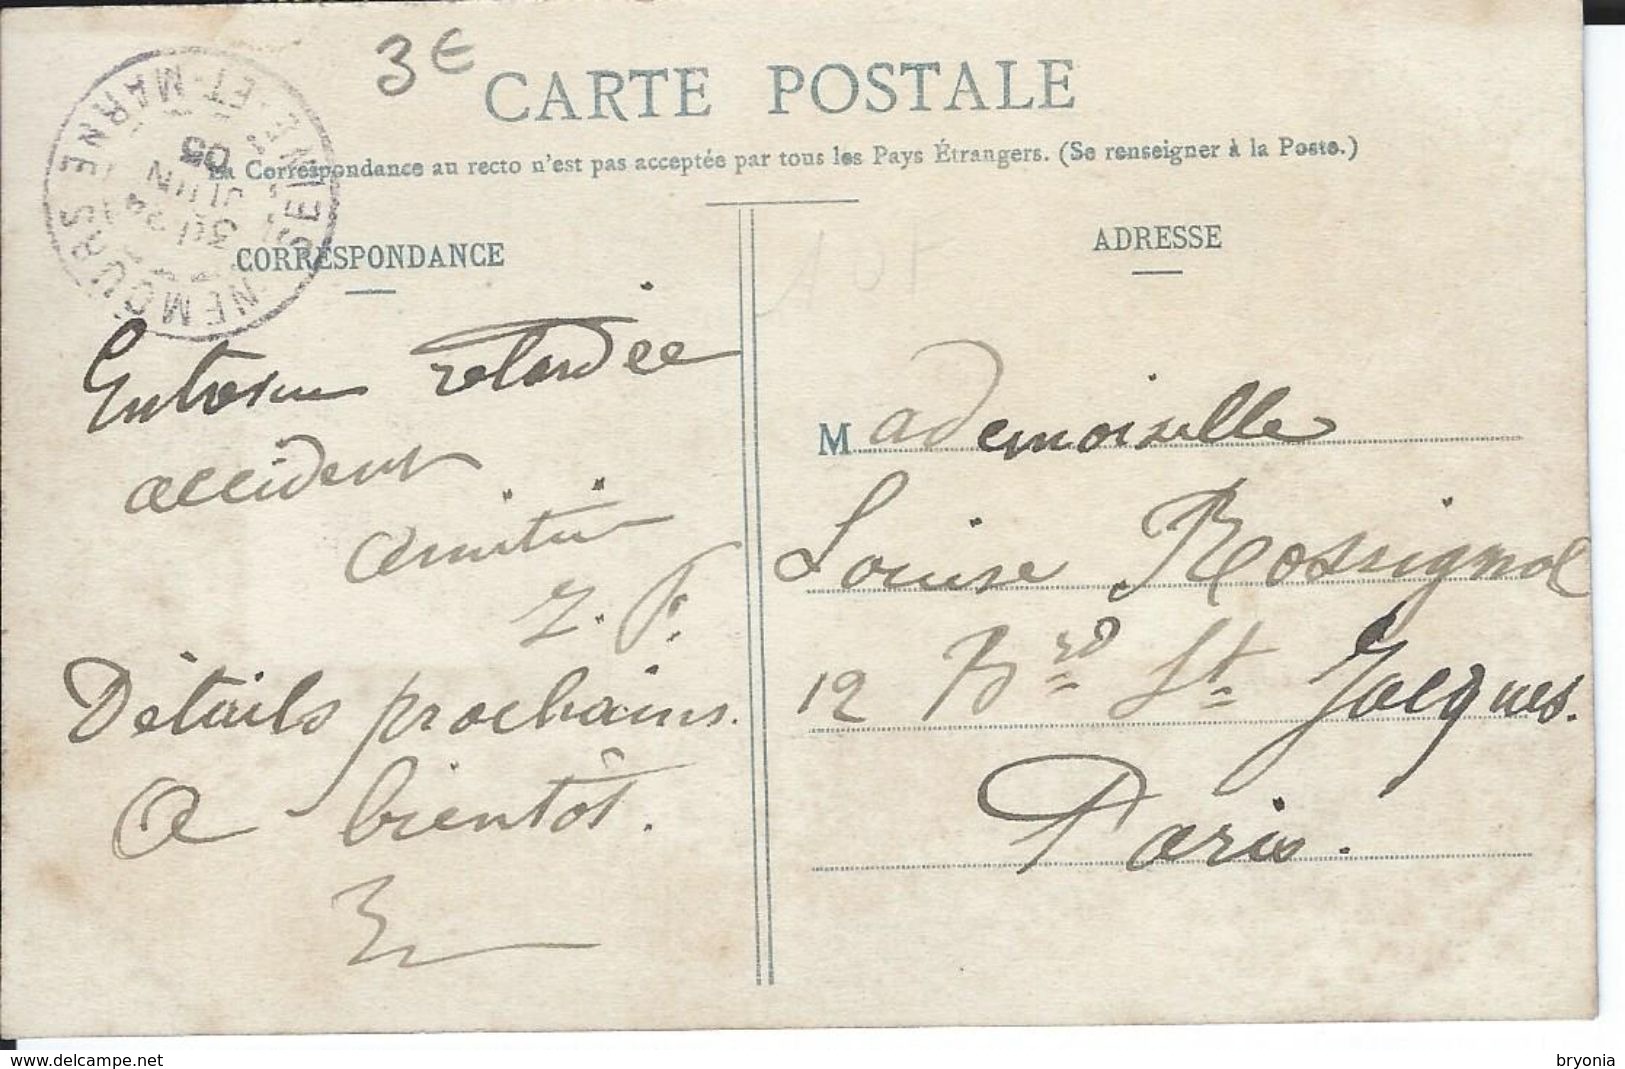 3€
CARTE POSTALE
La Correspondance au recto n'est pas acceptée par tous les Pays Étrangers. (Se renseigner à la Poste.)
NEMOURS
SEINE-ET-MARNE
30 JUIN 05
CORRESPONDANCE
retardée
accident
Détails prochains.
A bientôt.
ADRESSE
Mademoiselle
Louise Rossignol
12 Brd St Jacques.
Paris.
www.delcampe.net
bryonia